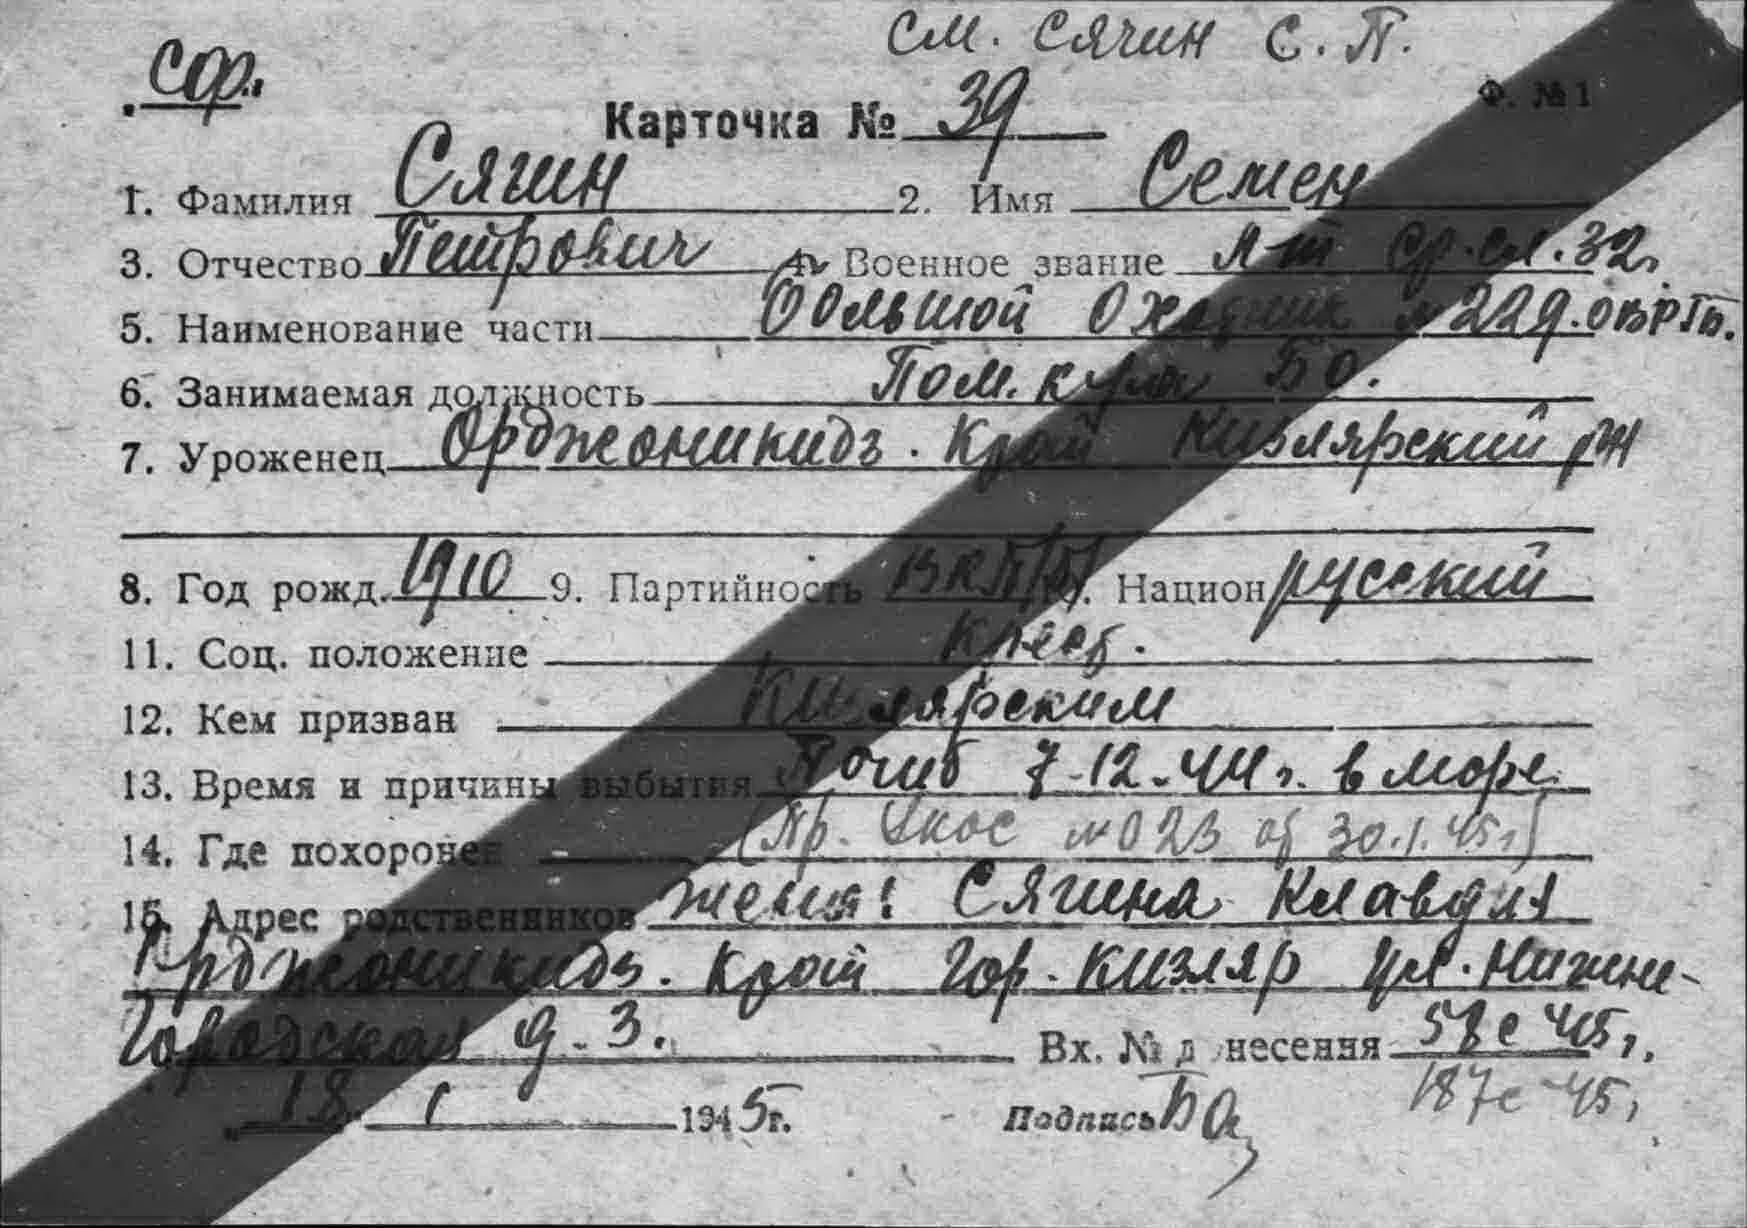 см. Сячин С. П.
СФ.
Ф. №1
Карточка № 39
1. Фамилия Сягин 2. Имя Семен
3. Отчество Петрович 4. Военное звание л-т ср. сл. 32.
5. Наименование части Большой Охотник № 229.
6. Занимаемая должность Пом. к-ра БО.
7. Уроженец Орджоникидз. край Кизлярский р-н
8. Год рожд. 1910 9. Партийность ВКП/б/ . Национ русский
11. Соц. положение Крест.
12. Кем призван Кизлярским
13. Время и причины выбытия Погиб 7-12-44г. в море
14. Где похоронен (Пр. № 023 от 30.1.45г)
15. Адрес родственников жена: Сягина Клавдия
Орджоникидз. край гор. Кизляр ул. Нижне-
Городская д. 3. Вх. № д несения 58с 45г.
187с 45г
18. 1 1945г. Подпись